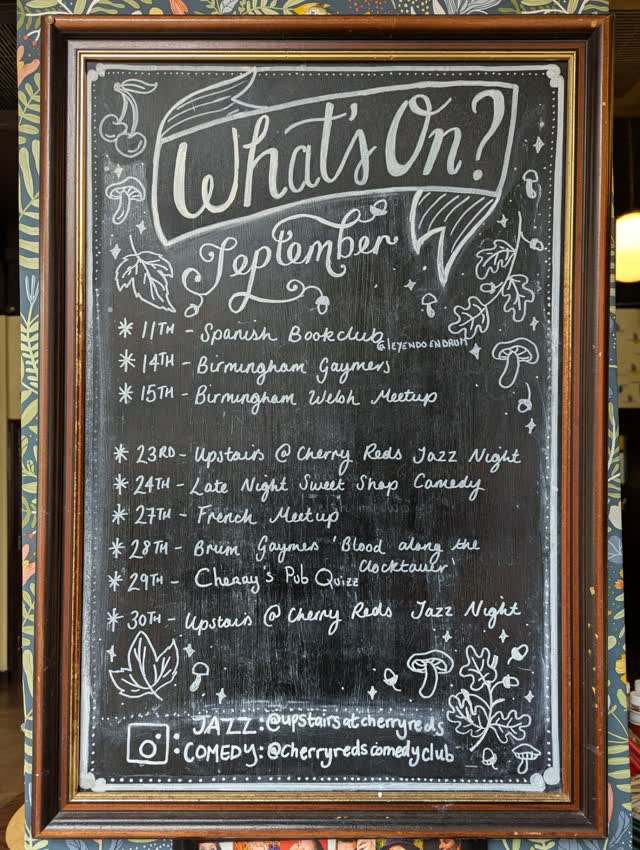 What's On?
September
* 11TH - Spanish Bookclub
@LEYENDOENBRUM
* 14TH - Birmingham Gaymers
* 15TH - Birmingham Welsh Meetup
* 23RD - Upstairs @ Cherry Reds Jazz Night
* 24TH - Late Night Sweet Shop Comedy
* 27TH - French Meetup
* 28TH - Brum Gaymers 'Blood along the
Clocktower'
* 29TH - Cherry's Pub Quizz
* 30TH - Upstairs @ Cherry Reds Jazz Night
JAZZ: @upstairsatcherryreds
: COMEDY: @cherryredscomedyclub